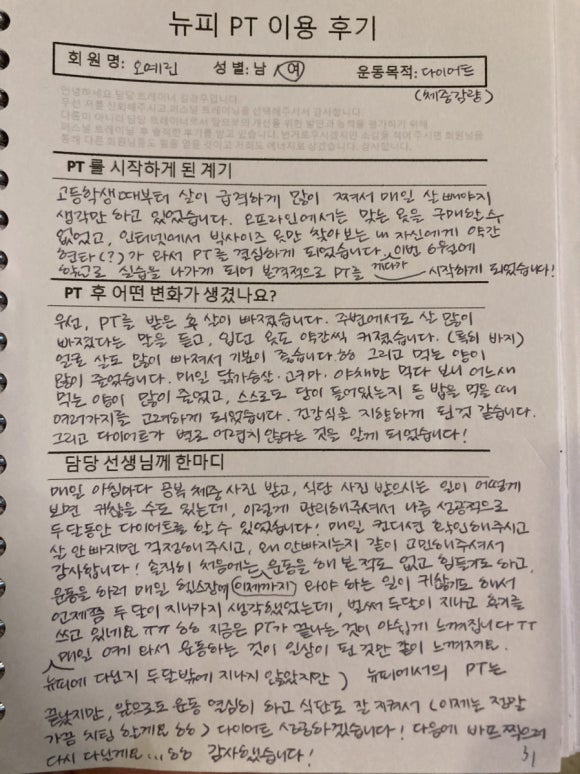 뉴피 PT 이용 후기
회원 명: 오예린 성별: 남 여 운동목적: 다이어트
(체중감량)
안녕하세요 담당 트레이너 김경우입니다.
우선 저를 신뢰해주시고 퍼스널 트레이닝을 선택해주셔서 감사합니다.
다름이 아니라 담당 트레이너로서 앞으로의 개선을 위한 발전과 능력을 평가하기 위해
퍼스널 트레이닝 후 솔직한 후기를 받고 있습니다. 번거로우시겠지만 소감을 적어 주시면 회원님을
통해 다른 회원님들도 힘을 얻을 것이고 저희도 에너지로 삼겠습니다. 감사합니다.
PT 를 시작하게 된 계기
고등학생때부터 살이 급격하게 많이 쪄서 매일 살 빼야지
생각만 하고 있었습니다. 오프라인에서는 맞는 옷을 구매할 수
없었고, 인터넷에서 빅사이즈 옷만 찾아보는 내 자신에게 약간
현타(?)가 와서 PT를 결심하게 되었습니다. 이번 6월에
학교로 실습을 나가게 되어 본격적으로 PT를 게다가 시작하게 되었습니다!
PT 후 어떤 변화가 생겼나요?
우선, PT를 받은 후 살이 빠졌습니다. 주변에서도 살 많이
빠졌다는 말을 듣고, 입던 옷도 약간씩 커졌습니다. (특히 바지)
얼굴 살도 많이 빠져서 기분이 좋습니다ㅎㅎ 그리고 먹는 양이
많이 줄었습니다. 매일 닭가슴살·고구마·야채만 먹다 보니 어느새
먹는 양이 많이 줄었고, 스스로도 당이 들어있는지 등 밥을 먹을 때
여러가지를 고려하게 되었습니다. 건강식을 지향하게 된 것 같습니다.
그리고 다이어트가 별로 어렵지 않다는 것을 알게 되었습니다!
담당 선생님께 한마디
매일 아침마다 공복 체중 사진 받고, 식단 사진 받으시는 일이 어떻게
보면 귀찮을 수도 있는데, 이렇게 관리해주셔서 나름 성공적으로
두달동안 다이어트를 할 수 있었습니다! 매일 컨디션 확인해주시고
살 안 빠지면 걱정해주시고, 왜 안빠지는지 같이 고민해주셔서
감사합니다! 솔직히 처음에는 운동을 해 본 적도 없고 힘들기도 하고,
운동을 하러 매일 헬스장에 이제까지 와야 하는 일이 귀찮기도 해서
언제쯤 두 달이 지나가지 생각했었는데, 벌써 두달이 지나고 후기를
쓰고 있네요 ㅠㅠ ㅎㅎ 지금은 PT가 끝나는 것이 아쉽게 느껴집니다ㅜㅜ
매일 여기 와서 운동하는 것이 일상이 된 것만 같이 느껴져요.
뉴피에 다닌지 두달밖에 지나지 않았지만) 뉴피에서의 PT는
끝났지만, 앞으로도 운동 열심히 하고 식단도 잘 지켜서 (이제는 정말
가끔 치팅 할게요 ㅎㅎ) 다이어트 성공하겠습니다! 다음에 바프 찍으러
다시 다닐게요...ㅎㅎ 감사했습니다!
31